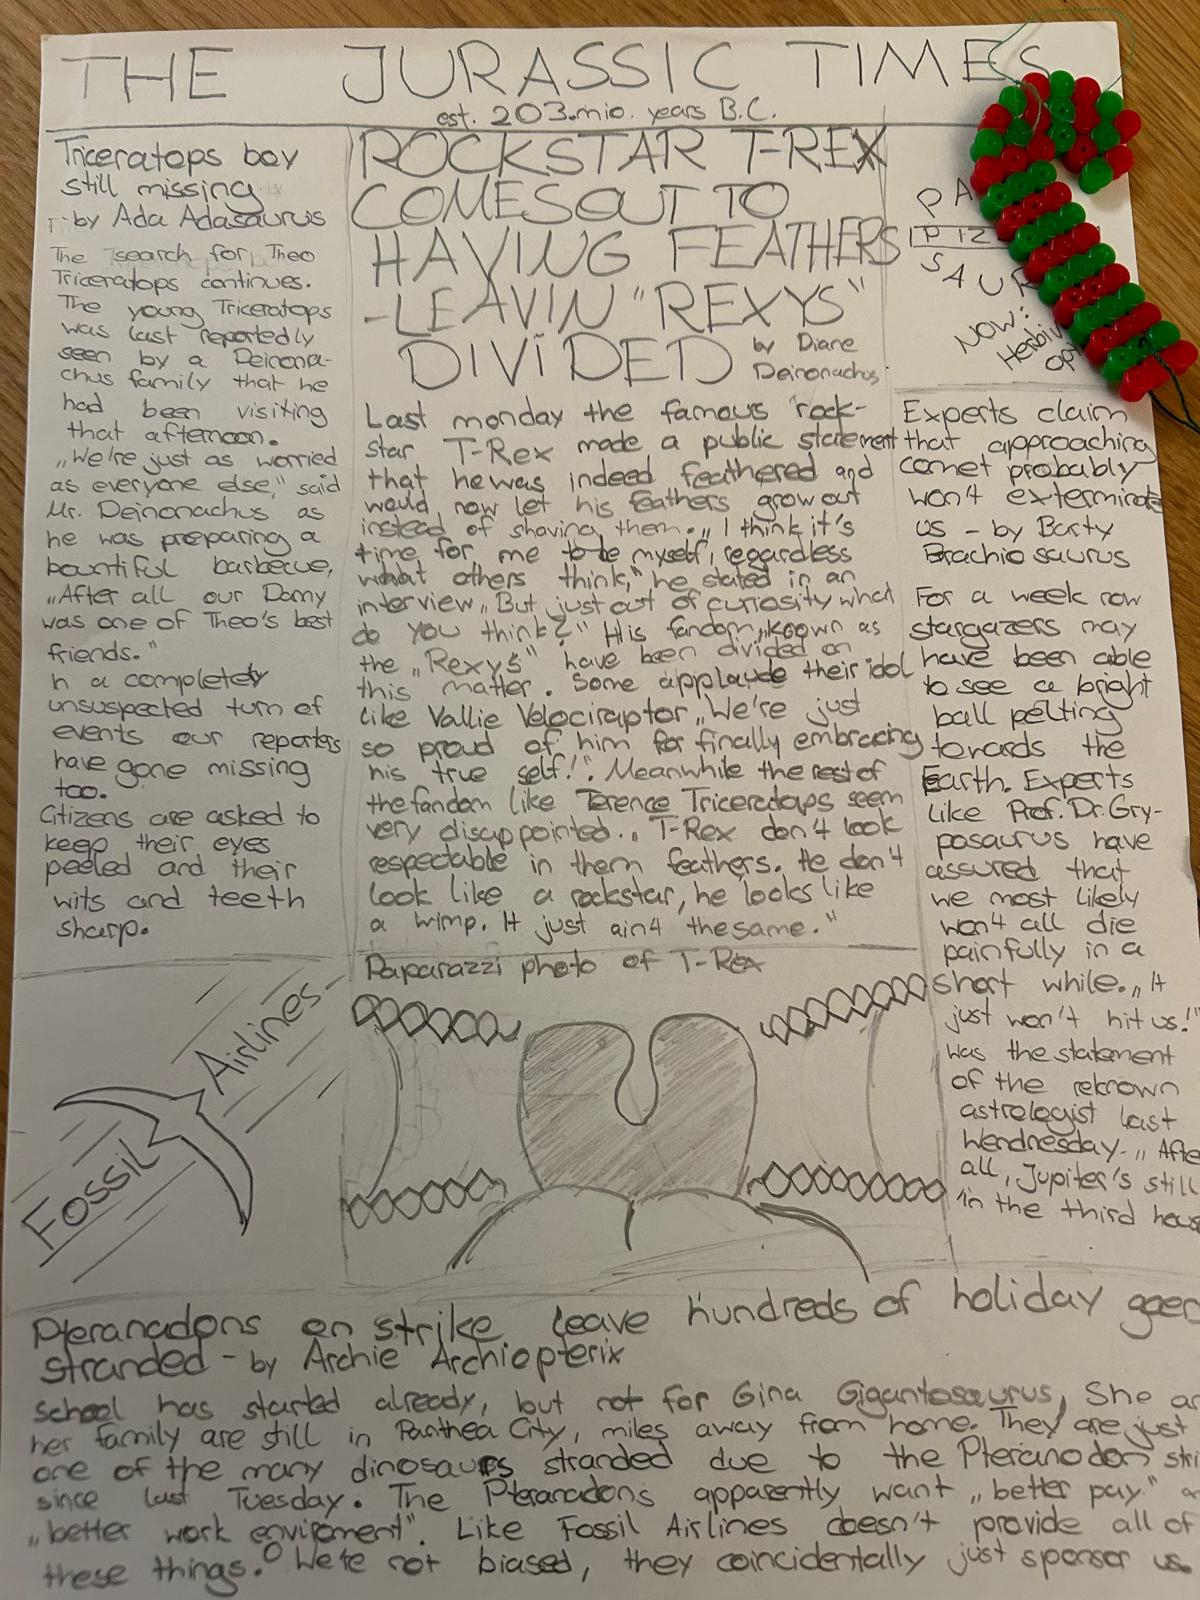 THE JURASSIC TIMES
est. 203.mio. years B.C.
Triceratops boy
still missing
by Ada Adasaurus
The search for Theo
Triceratops continues.
The young Triceratops
was last reportedly
seen by a Deinona-
chus family that he
had been visiting
that afternoon.
„We're just as worried
as everyone else," said
Mr. Deinonachus as
he was preparing a
bountiful barbecue,
„After all our Danny
was one of Theo's best
friends."
n a completely
unsuspected turn of
events our reporters
have gone missing
too.
Citizens are asked to
keep their eyes
peeled and their
wits and teeth
sharp.
Fossil Airlines
ROCKSTAR T-REX
COMES OUT TO
HAVING FEATHERS
-LEAVIN "REXYS"
DIVIDED
by Diane
Deinonachus
Last monday the famous rock-
star T-Rex made a public statement
that he was indeed feathered and
would now let his feathers grow out
instead of shaving them. „I think it's
time for me to be myself, regardless
what others think," he stated in an
interview „But just out of curiosity what
do you think?" His fandom, known as
the „Rexys" have been divided on
this matter. Some applaude their idol
like Vallie Velociraptor „We're just
so proud of him for finally embracing
his true self!". Meanwhile the rest of
the fandom like Terence Triceratops seem
very disappointed. „T-Rex don't look
respectable in them feathers. He don't
look like a rockstar, he looks like
a wimp. It just ain't the same."
Paparazzi photo of T-Rex
PA
PIZ
SAUR
NOW:
Herbiv
opt
Experts claim
that approaching
comet probably
won't exterminate
us - by Barty
Brachiosaurus
For a week now
stargazers may
have been able
to see a bright
ball pelting
towards the
Earth. Experts
like Prof. Dr. Gry-
posaurus have
assured that
we most likely
won't all die
painfully in a
short while. „It
just won't hit us!"
was the statement
of the reknown
astrologist last
Wendnesday. „After
all, Jupiter's still
in the third house
Pteranadons on strike leave hundreds of holiday goers
stranded - by Archie Archiopterix
School has started already, but not for Gina Gigantosaurus. She an
her family are still in Panthea City, miles away from home. They are just
one of the many dinosaurs stranded due to the Pteranodon stri
since last Tuesday. The Pteranadons apparently want „better pay" a
„better work enviroment". Like Fossil Airlines doesn't provide all of
these things. We're not biased, they coincidentally just sponsor us.